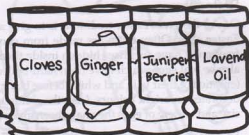 Cloves
Ginger
Juniper
Berries
Laven
Oil